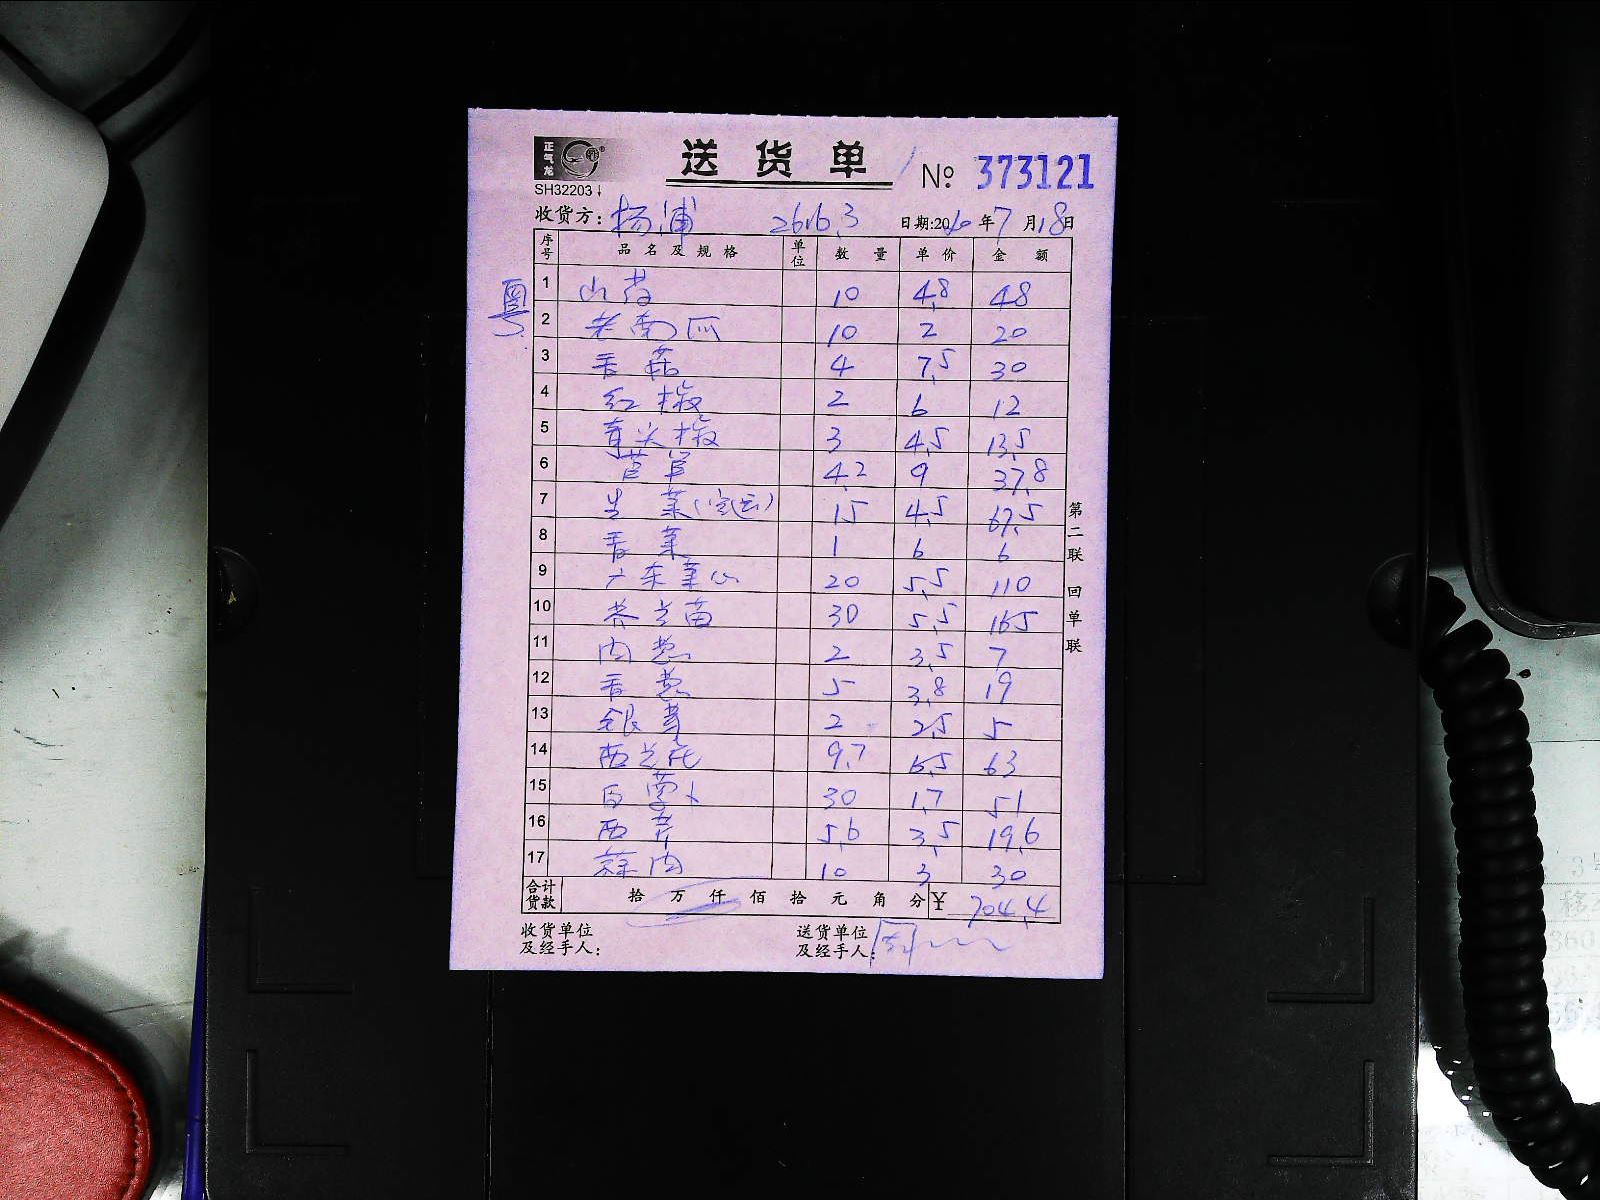 正气龙
送货单 № 373121
SH32203
收货方: 杨浦 2616.3 日期:2010年7月18日
序号 品名及规格 单位 数量 单价 金额
粤
1 山药 10 4.8 48
2 老南瓜 10 2 20
3 香菇 4 7.5 30
4 红椒 2 6 12
5 青尖椒 3 4.5 13.5
6 芦笋 4.2 9 37.8
7 生菜 15 4.5 67.5
8 香菜 1 6 6
9 广东菜心 20 5.5 110
10 芥兰苗 30 5.5 165
11 肉葱 2 3.5 7
12 香葱 5 3.8 19
13 银芽 2 2.5 5
14 西兰花 9.7 6.5 63
15 白萝卜 30 1.7 51
16 西芹 5.6 3.5 19.6
17 蒜肉 10 3 30
合计货款 拾万仟佰拾元角分 ¥ 704.4
收货单位及经手人: 送货单位及经手人: 周
第二联 回单联